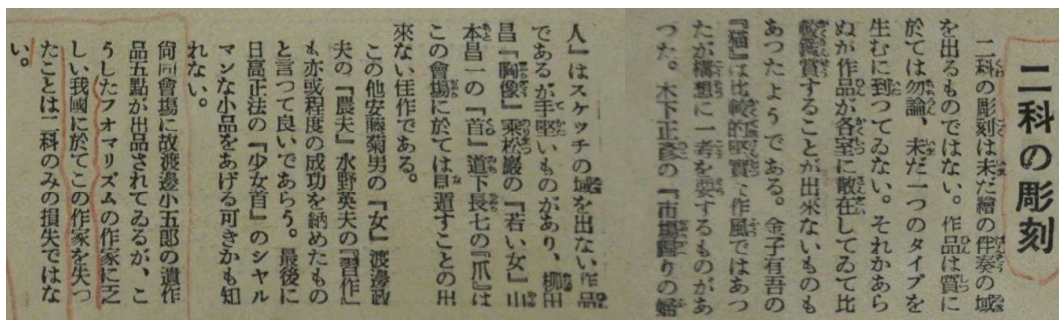 二科の彫刻
二科の彫刻は未だ繪の伴奏の域
を出るものではない。作品は質に
於ては勿論、未だ一つのタイプを
生むに到つてゐない。それかあら
ぬが作品が各室に散在してゐて比
較鑑賞することが出來ないものも
あつたようである。金子有吾の
『猫』は比較的堅實な作風ではあつ
たが構想に一考を要するものがあ
つた。木下正彥の『市場歸りの婦
人』はスケッチの域を出ない作品
であるが手堅いものがあり、柳田
昌『胸像』乘松巖の『若い女』山
本昌一の『首』道下長七の『爪』は
この會場に於ては見遁すことの出
來ない佳作である。
この他安藤菊男の『女』渡邊政
夫の『農夫』水野英夫の『習作』
も亦或程度の成功を納めたもの
と言つて良いであらう。最後に
日高正法の『少女首』のシャル
マンな小品をあげる可きかも知
れない。
尙同會場に故渡邊小五郎の遺作
品五點が出品されてゐるが、こ
うしたフオマリズムの作家に乏
しい我國に於てこの作家を失つ
たことは二科のみの損失ではな
い。